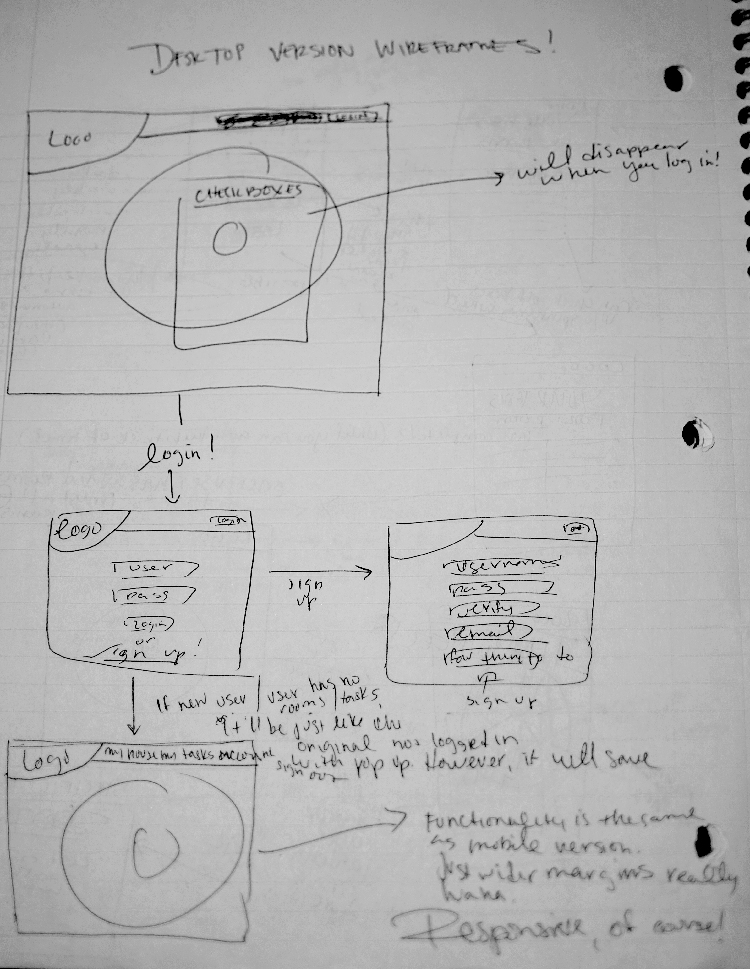 DESKTOP VERSION WIREFRAMES!
LOGO
CHECKBOXES
will disappear
when you log in!
login!
Logo
login
user
pass
login
or
sign up!
sign
up
username
pass
verify
email
to
up
sign up
If new user / user has no
rooms / tasks,
it'll be just like the
original not logged in
with pop up. However, it will save
Logo
my house my tasks account
sign
out
Functionality is the same
as mobile version.
Just wider margins really
haha.
Responsive, of course!